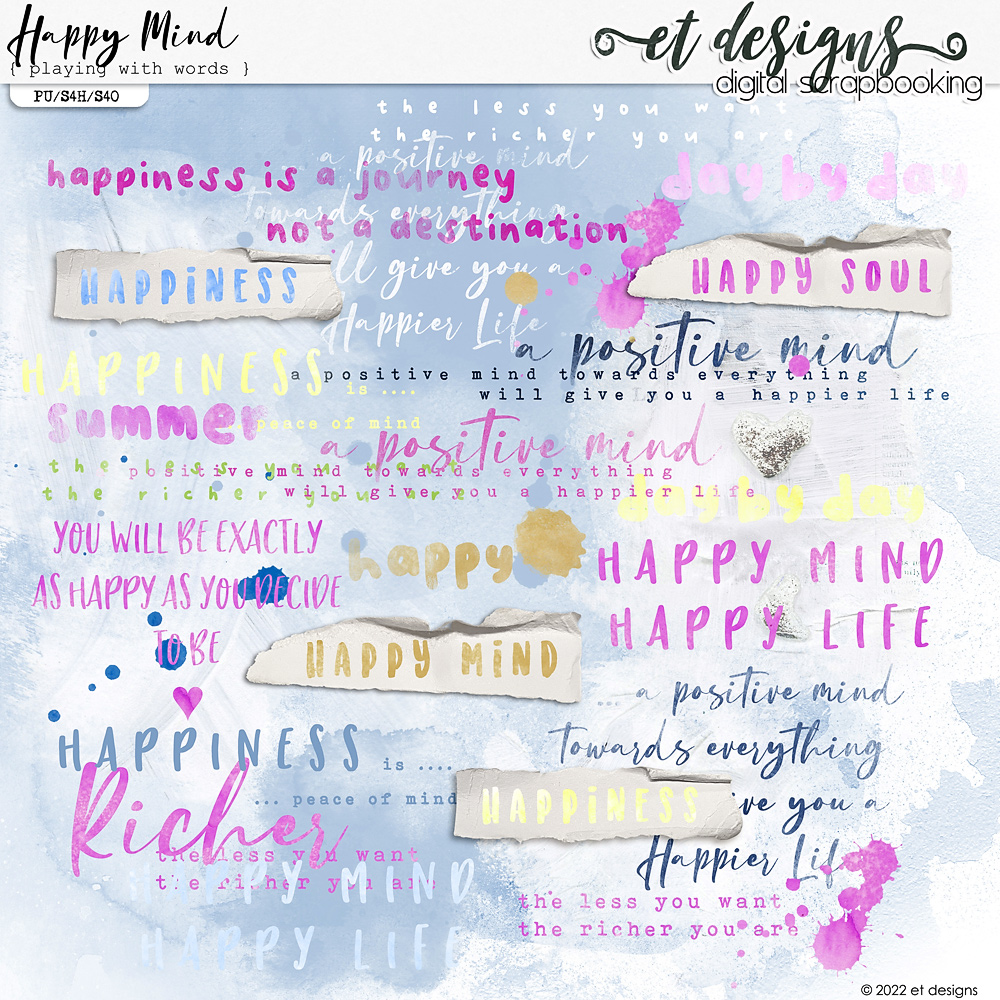 Happy Mind
{ playing with words }
PU/S4H/S4O
et designs
digital scrapbooking
the less you want
the richer you are
a positive mind
towards everything
ll give you a
Happier Life
happiness is a journey
not a destination
day by day
HAPPINESS
HAPPY SOUL
a positive mind
a positive mind towards everything
will give you a happier life
HAPPINESS
is ....
peace of mind
summer
a positive mind
positive mind towards everything
will give you a happier life
the less you want
the richer you are
day by day
YOU WILL BE EXACTLY
AS HAPPY AS YOU DECIDE
TO BE
happy
HAPPY MIND
HAPPY LIFE
HAPPY MIND
... a positive mind
Towards everything
ive you a
Happier Life
HAPPINESS
is ....
... peace of mind
HAPPINESS
Richer
the less you want
the richer you are
HAPPY MIND
HAPPY LIFE
the less you want
the richer you are
© 2022 et designs